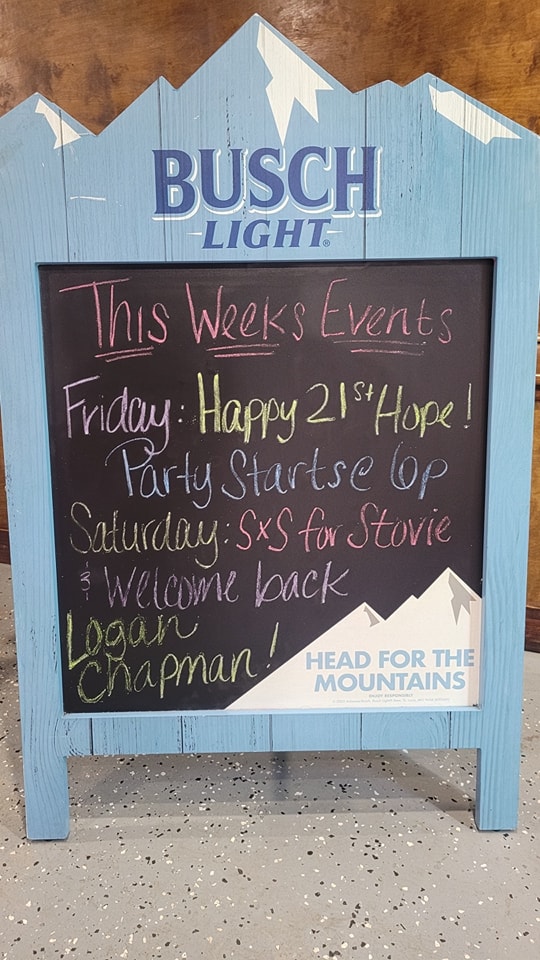 BUSCH
LIGHT
This Weeks Events
Friday: Happy 21st Hope!
Party Starts @ 6p
Saturday: SxS for Stovie
& Welcome back
Logan
Chapman!
HEAD FOR THE
MOUNTAINS
ENJOY RESPONSIBLY